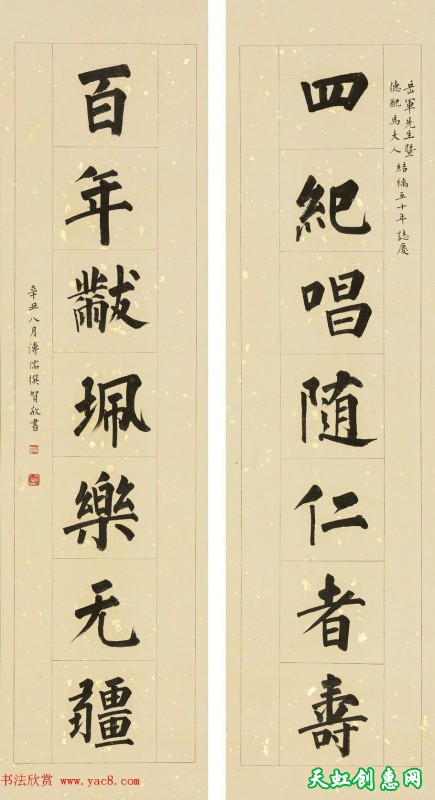 岳軍先生暨
德配馬夫人
結褵五十年誌慶
四紀唱随仁者壽
百年黻珮樂无疆
辛丑八月溥儒撰賀敬書
书法欣赏 www.yac8.com
天虹创意网